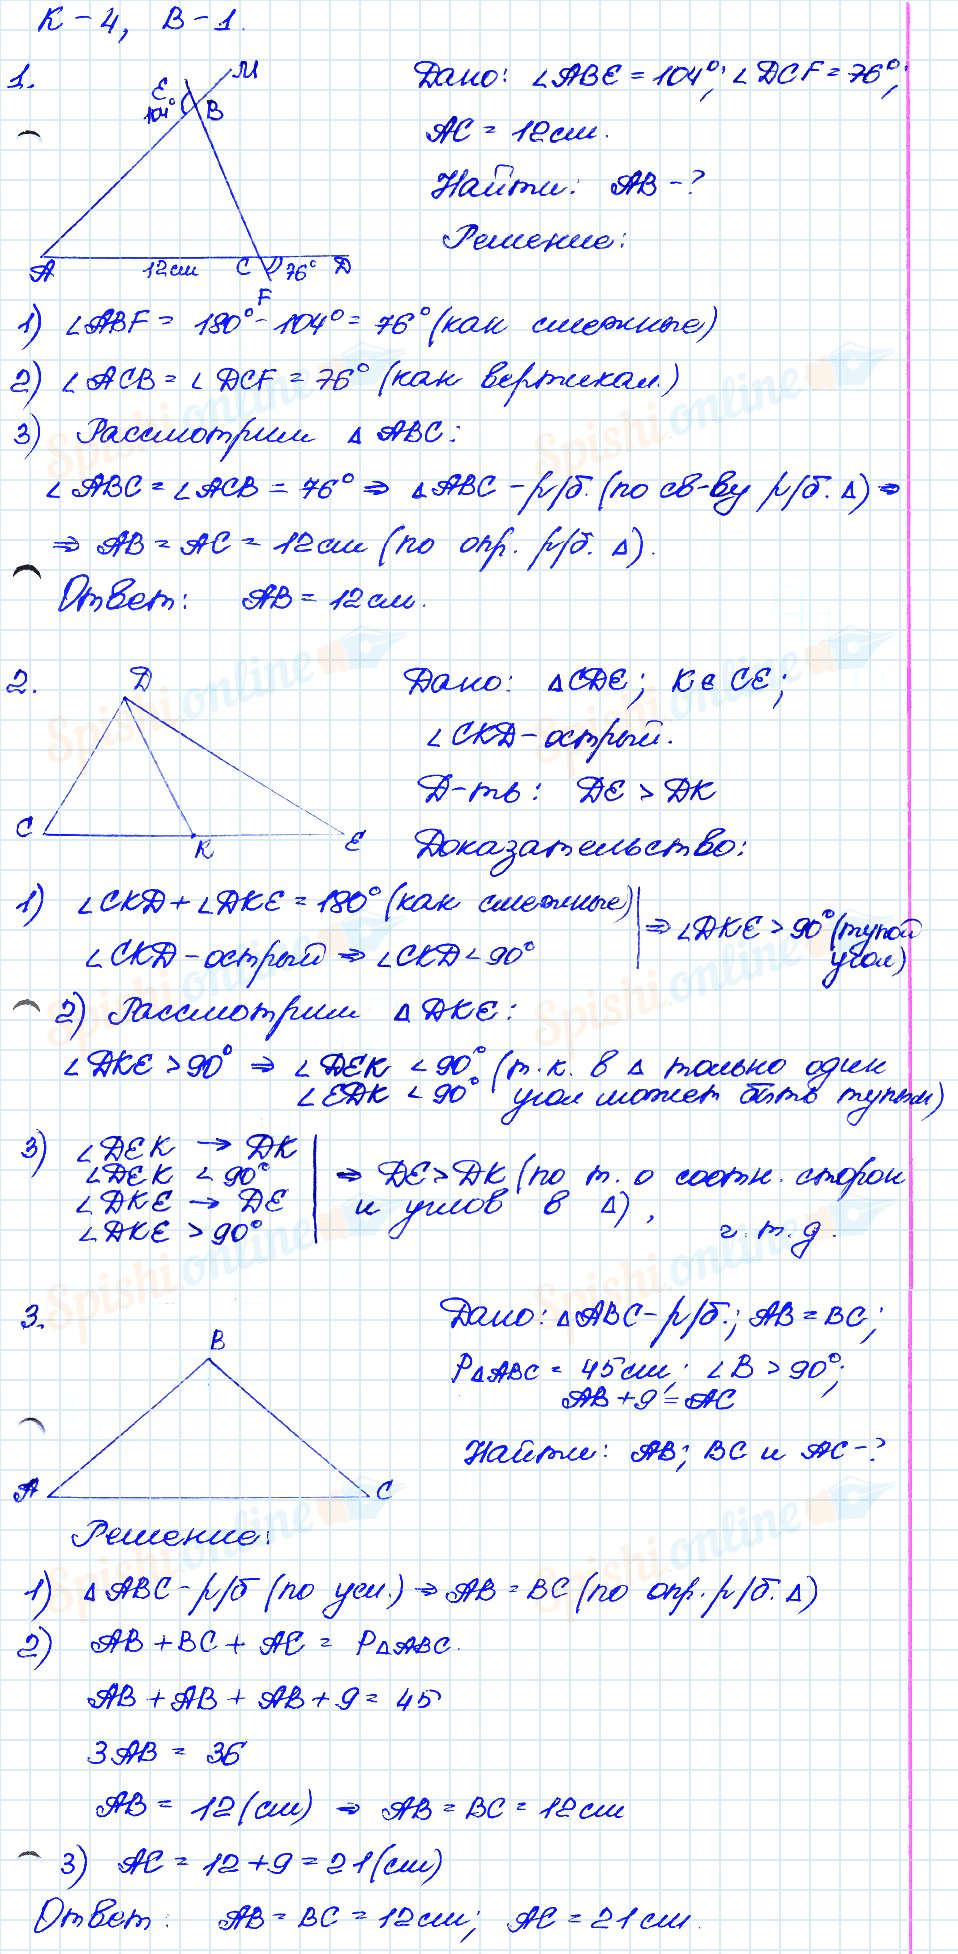 К-4, В-1.
1.
E
M
104°
B
A
12см
C
76°
D
F
Дано: ∠ABE = 104°; ∠DCF = 76°;
AC = 12см.
Найти: AB - ?
Решение:
1) ∠ABF = 180° - 104° = 76° (как смежные)
2) ∠ACB = ∠DCF = 76° (как вертикал.)
3) Рассмотрим △ABC:
∠ABC = ∠ACB = 76° ⇒ △ABC - р/б. (по св-ву р/б. △) ⇒
⇒ AB = AC = 12см (по опр. р/б. △).
Ответ: AB = 12см.
2.
D
C
K
E
Дано: △CDE; K ∈ CE;
∠CKD - острый.
Д-ть: DE > DK
Доказательство:
1) ∠CKD + ∠DKE = 180° (как смежные)
∠CKD - острый ⇒ ∠CKD < 90°
⇒ ∠DKE > 90° (тупой
угол)
2) Рассмотрим △DKE:
∠DKE > 90° ⇒ ∠DEK < 90° (т.к. в △ только один
∠EDK < 90° угол может быть тупым)
3) ∠DEK → DK
∠DEK < 90°
∠DKE → DE
∠DKE > 90°
⇒ DE > DK (по т. о соотн. сторон
и углов в △),
ч.т.д.
3.
B
A
C
Дано: △ABC - р/б.; AB = BC;
P△ABC = 45см; ∠B > 90°;
AB + 9 = AC
Найти: AB; BC и AC - ?
Решение:
1) △ABC - р/б (по усл.) ⇒ AB = BC (по опр. р/б. △)
2) AB + BC + AC = P△ABC.
AB + AB + AB + 9 = 45
3AB = 36
AB = 12 (см) ⇒ AB = BC = 12см
3) AC = 12 + 9 = 21 (см)
Ответ: AB = BC = 12см; AC = 21см.
Spishi online